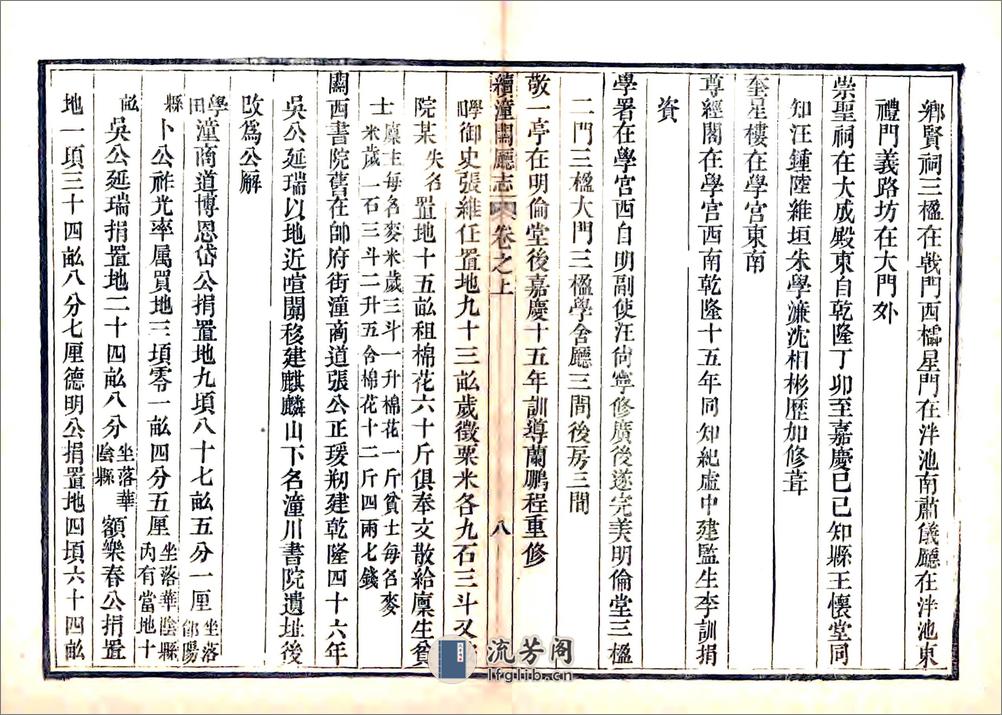 鄉賢祠三楹在戟門西櫺星門在泮池南肅儀廳在泮池東
禮門義路坊在大門外
崇聖祠在大成殿東自乾隆丁卯至嘉慶己巳知縣王懷堂同
知汪鍾陸維垣朱學濂沈相彬歷加修葺
奎星樓在學宮東南
尊經閣在學宮西南乾隆十五年同知紀虛中建監生李訓捐
資
學署在學宮西自明副使汪尚寧修廣後遂完美明倫堂三楹
二門三楹大門三楹學舍廳三間後房三間
敬一亭在明倫堂後嘉慶十五年訓導蘭鵬程重修
續潼關廳志 卷之上 八
學田御史張維任置地九十三畝歲徵粟米各九石三斗又
院某失名置地十五畝租棉花六十斤俱奉文散給廩生貧
士廩生每名麥米歲三斗一升棉花一斤貧士每名麥
米歲一石三斗二升五合棉花十二斤四兩七錢
關西書院舊在帥府街潼商道張公正瑗剏建乾隆四十六年
吳公延瑞以地近喧闐移建麒麟山下名潼川書院遺址後
改爲公廨
學田潼商道博恩岱公捐置地九頃八十七畝五分一厘坐落郃陽
縣卜公祚光率属買地三頃零一畝四分五厘坐落華陰縣內有當地十
畝吳公延瑞捐置地二十四畝八分坐落華陰縣額樂春公捐置
地一項三十四畝八分七厘德明公捐置地四頃六十四畝
流芳阁
lfglib.cn